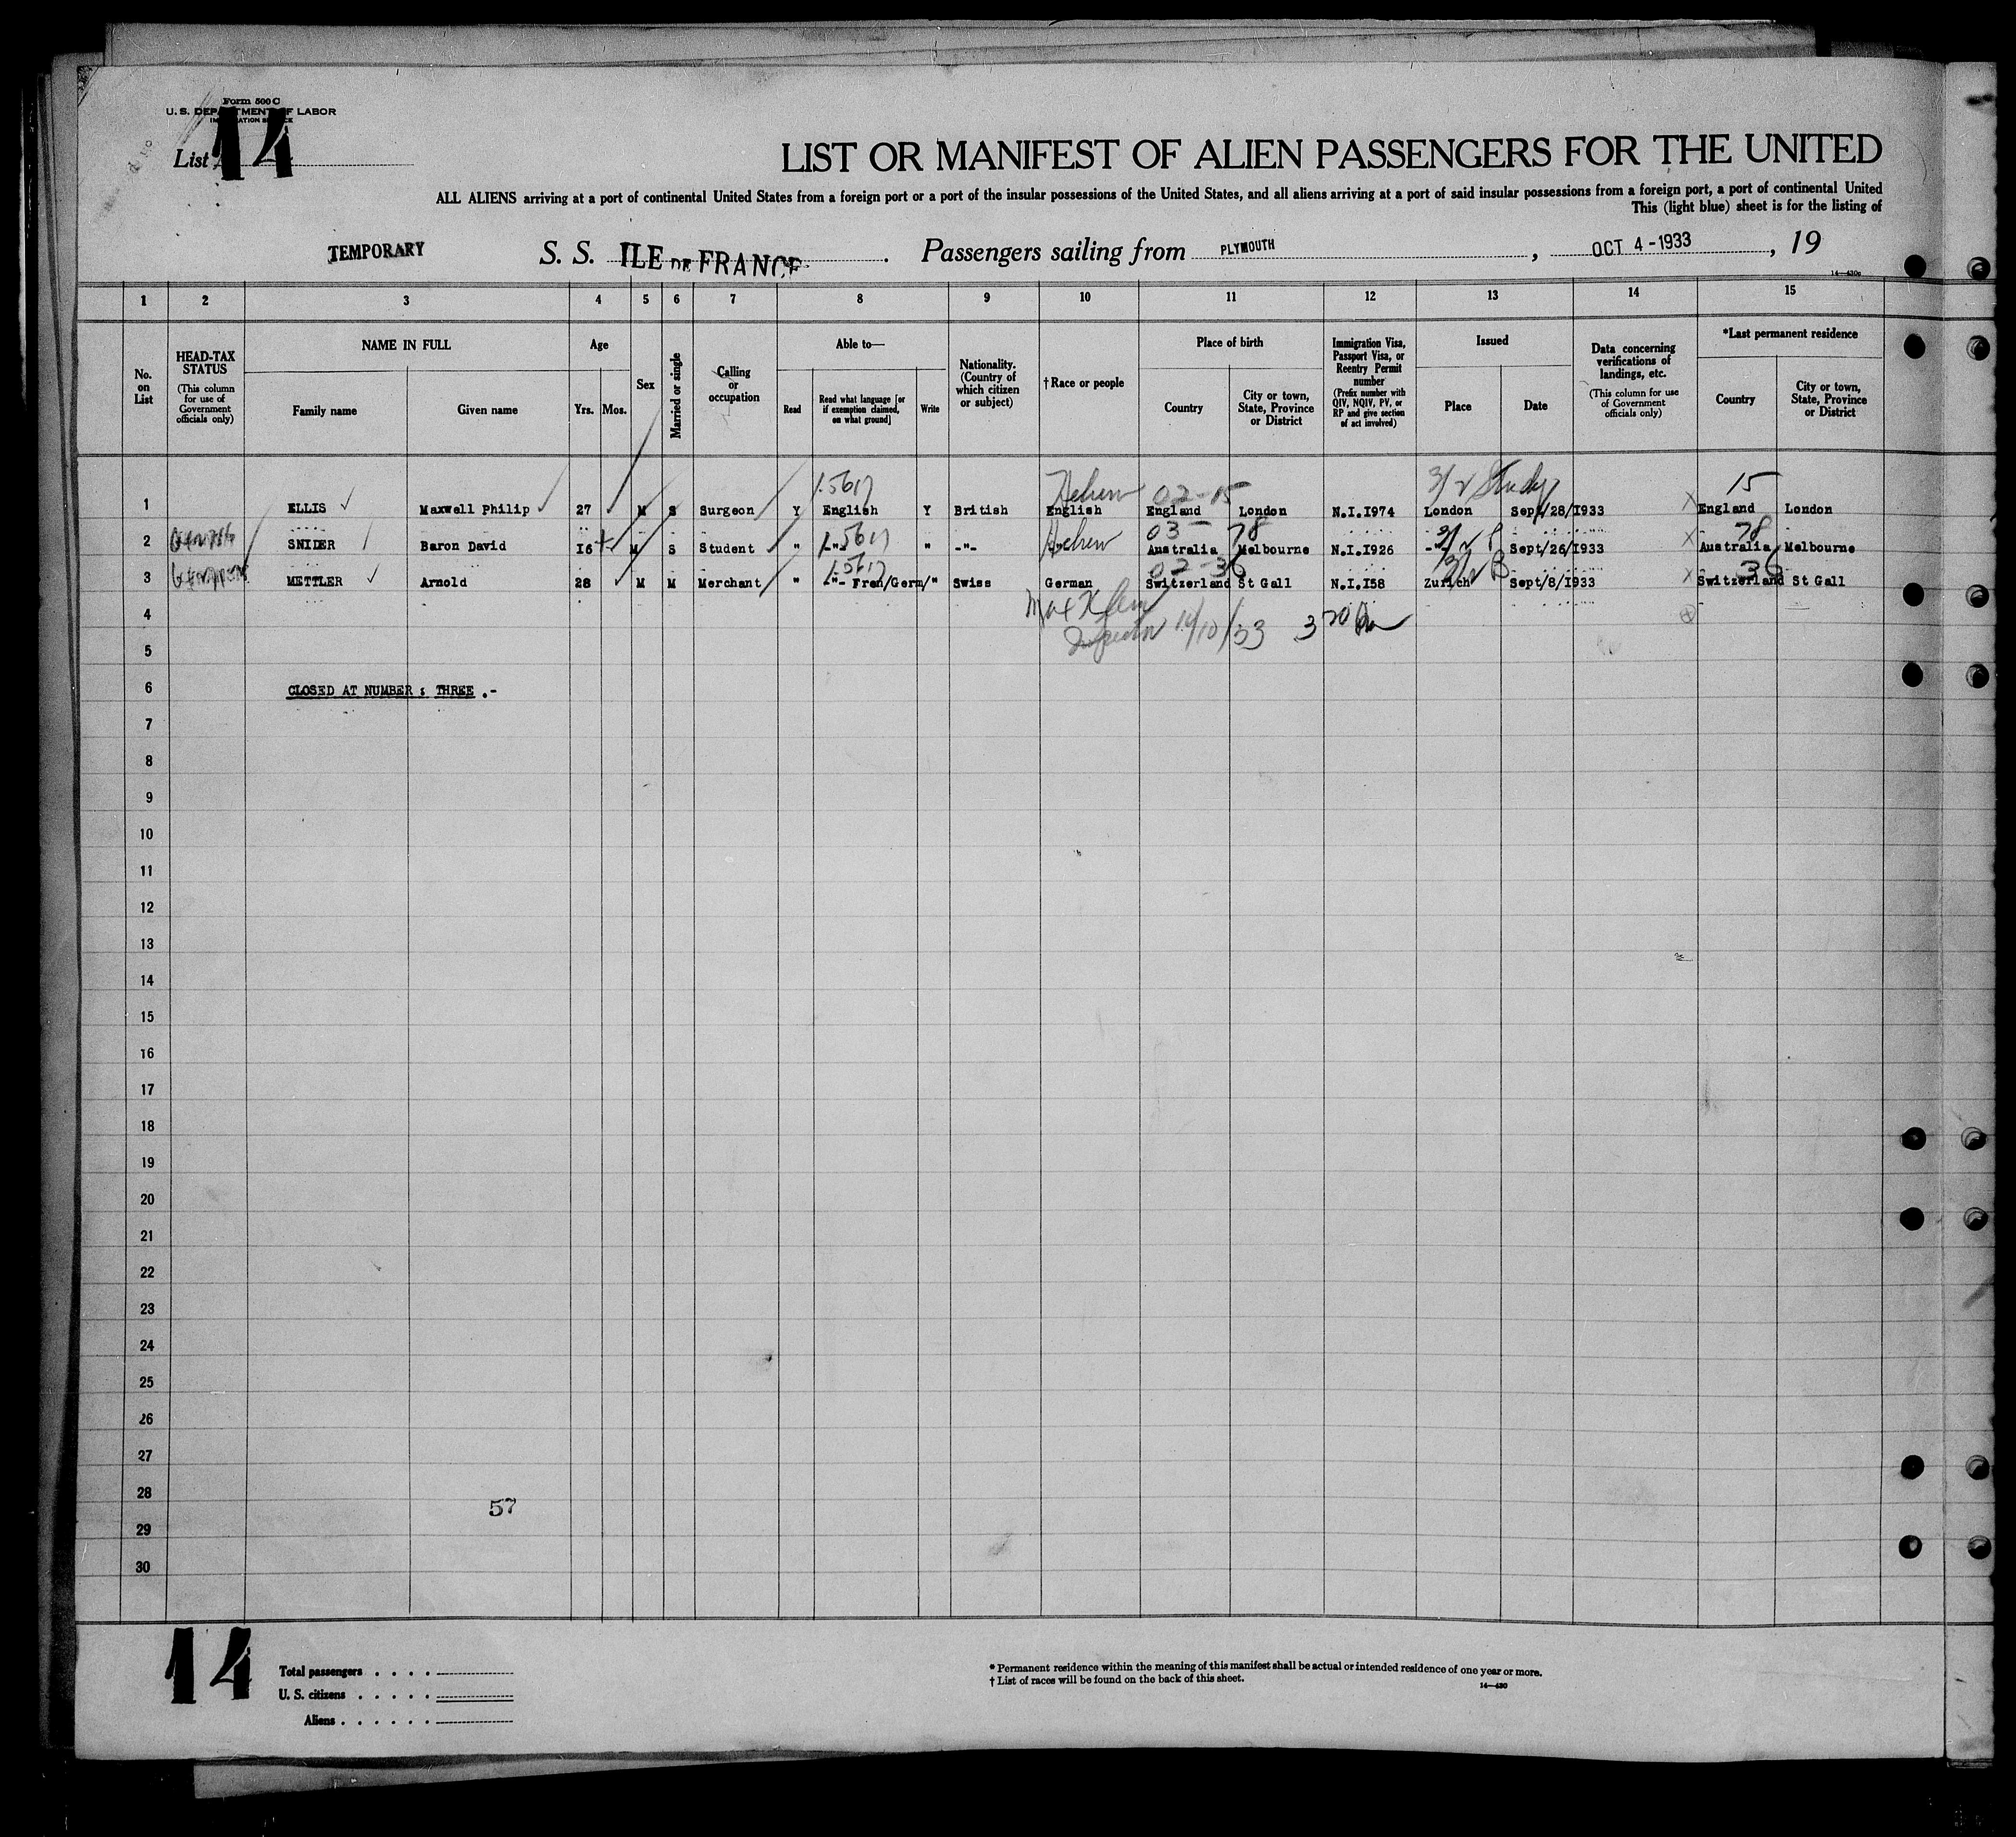 Form 500 C
U. S. DEPARTMENT OF LABOR
IMMIGRATION SERVICE
List 14
LIST OR MANIFEST OF ALIEN PASSENGERS FOR THE UNITED
ALL ALIENS arriving at a port of continental United States from a foreign port or a port of the insular possessions of the United States, and all aliens arriving at a port of said insular possessions from a foreign port, a port of continental United
This (light blue) sheet is for the listing of
TEMPORARY S. S. ILE DE FRANCE. Passengers sailing from PLYMOUTH, OCT 4-1933, 19
14—430c
1 2 3 4 5 6 7 8 9 10 11 12 13 14 15
No. on List
HEAD-TAX STATUS (This column for use of Government officials only)
NAME IN FULL
Family name
Given name
Age
Yrs. Mos.
Sex
Married or single
Calling or occupation
Able to—
Read
Read what language [or if exemption claimed, on what ground]
Write
Nationality. (Country of which citizen or subject)
†Race or people
Place of birth
Country
City or town, State, Province or District
Immigration Visa, Passport Visa, or Reentry Permit number (Prefix number with QIV, NQIV, PV, or RP and give section of act involved)
Issued
Place
Date
Data concerning verifications of landings, etc. (This column for use of Government officials only)
*Last permanent residence
Country
City or town, State, Province or District
15617 Hebrew 02-15 3/2 Study 15
1 ELLIS Maxwell Philip 27 M S Surgeon Y English Y British English England London N.I.I974 London Sept/28/I933 England London
1-5617 Hebrew 03 78 3/2 P 78
2 SNIDER Baron David I6 M S Student " -"- " -"- Australia Melbourne N.I.I926 -"- Sept/26/I933 Australia Melbourne
1-5617 02-36 3/2 B 36
3 METTLER Arnold 28 M M Merchant " -"- Fren/Germ/ " Swiss German Switzerland St Gall N.I.I58 Zurich Sept/8/I933 Switzerland St Gall
4
Max
14/10/33 3 20
5
6 CLOSED AT NUMBER : THREE .-
7
8
9
10
11
12
13
14
15
16
17
18
19
20
21
22
23
24
25
26
27
28
57
29
30
14
Total passengers . . . .
U. S. citizens . . . . .
Aliens . . . . . .
* Permanent residence within the meaning of this manifest shall be actual or intended residence of one year or more.
† List of races will be found on the back of this sheet.
14—430